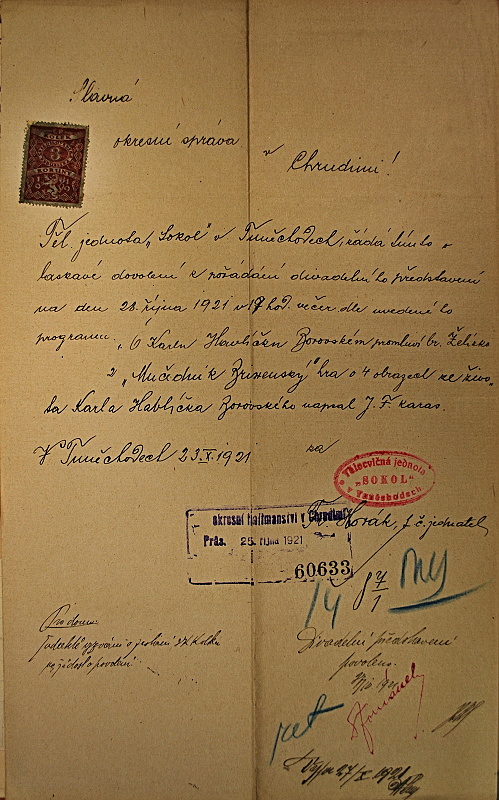 Slavná
okresní správa
v
Chrudimi!
KOLEK
3
KORUNY
Těl. jednota „Sokol" v Tuněchodech, žádá tímto o
laskavé dovolení k pořádání divadelního představení
na den 28. října 1921 v 19 hod. večer dle uvedeného
programu. 1. O Karlu Havlíčku Borovském promluví br. Želízko
2 „Mučedník Brixenský" hra o 4 obrazech ze živo-
ta Karla Havlíčka Borovského napsal J. F. Karas.
V Tuněchodech 23.X.1921
za
Tělocvičná jednota
„SOKOL"
v Tuněchodech
Fr. Horák, t. č. jednatel
okresní hejtmanství v Chrudimi
Präs. 25. října 1921
60633
14
87/1
Pro domo:
Divadelní představení
povoleno.
27/X 1921